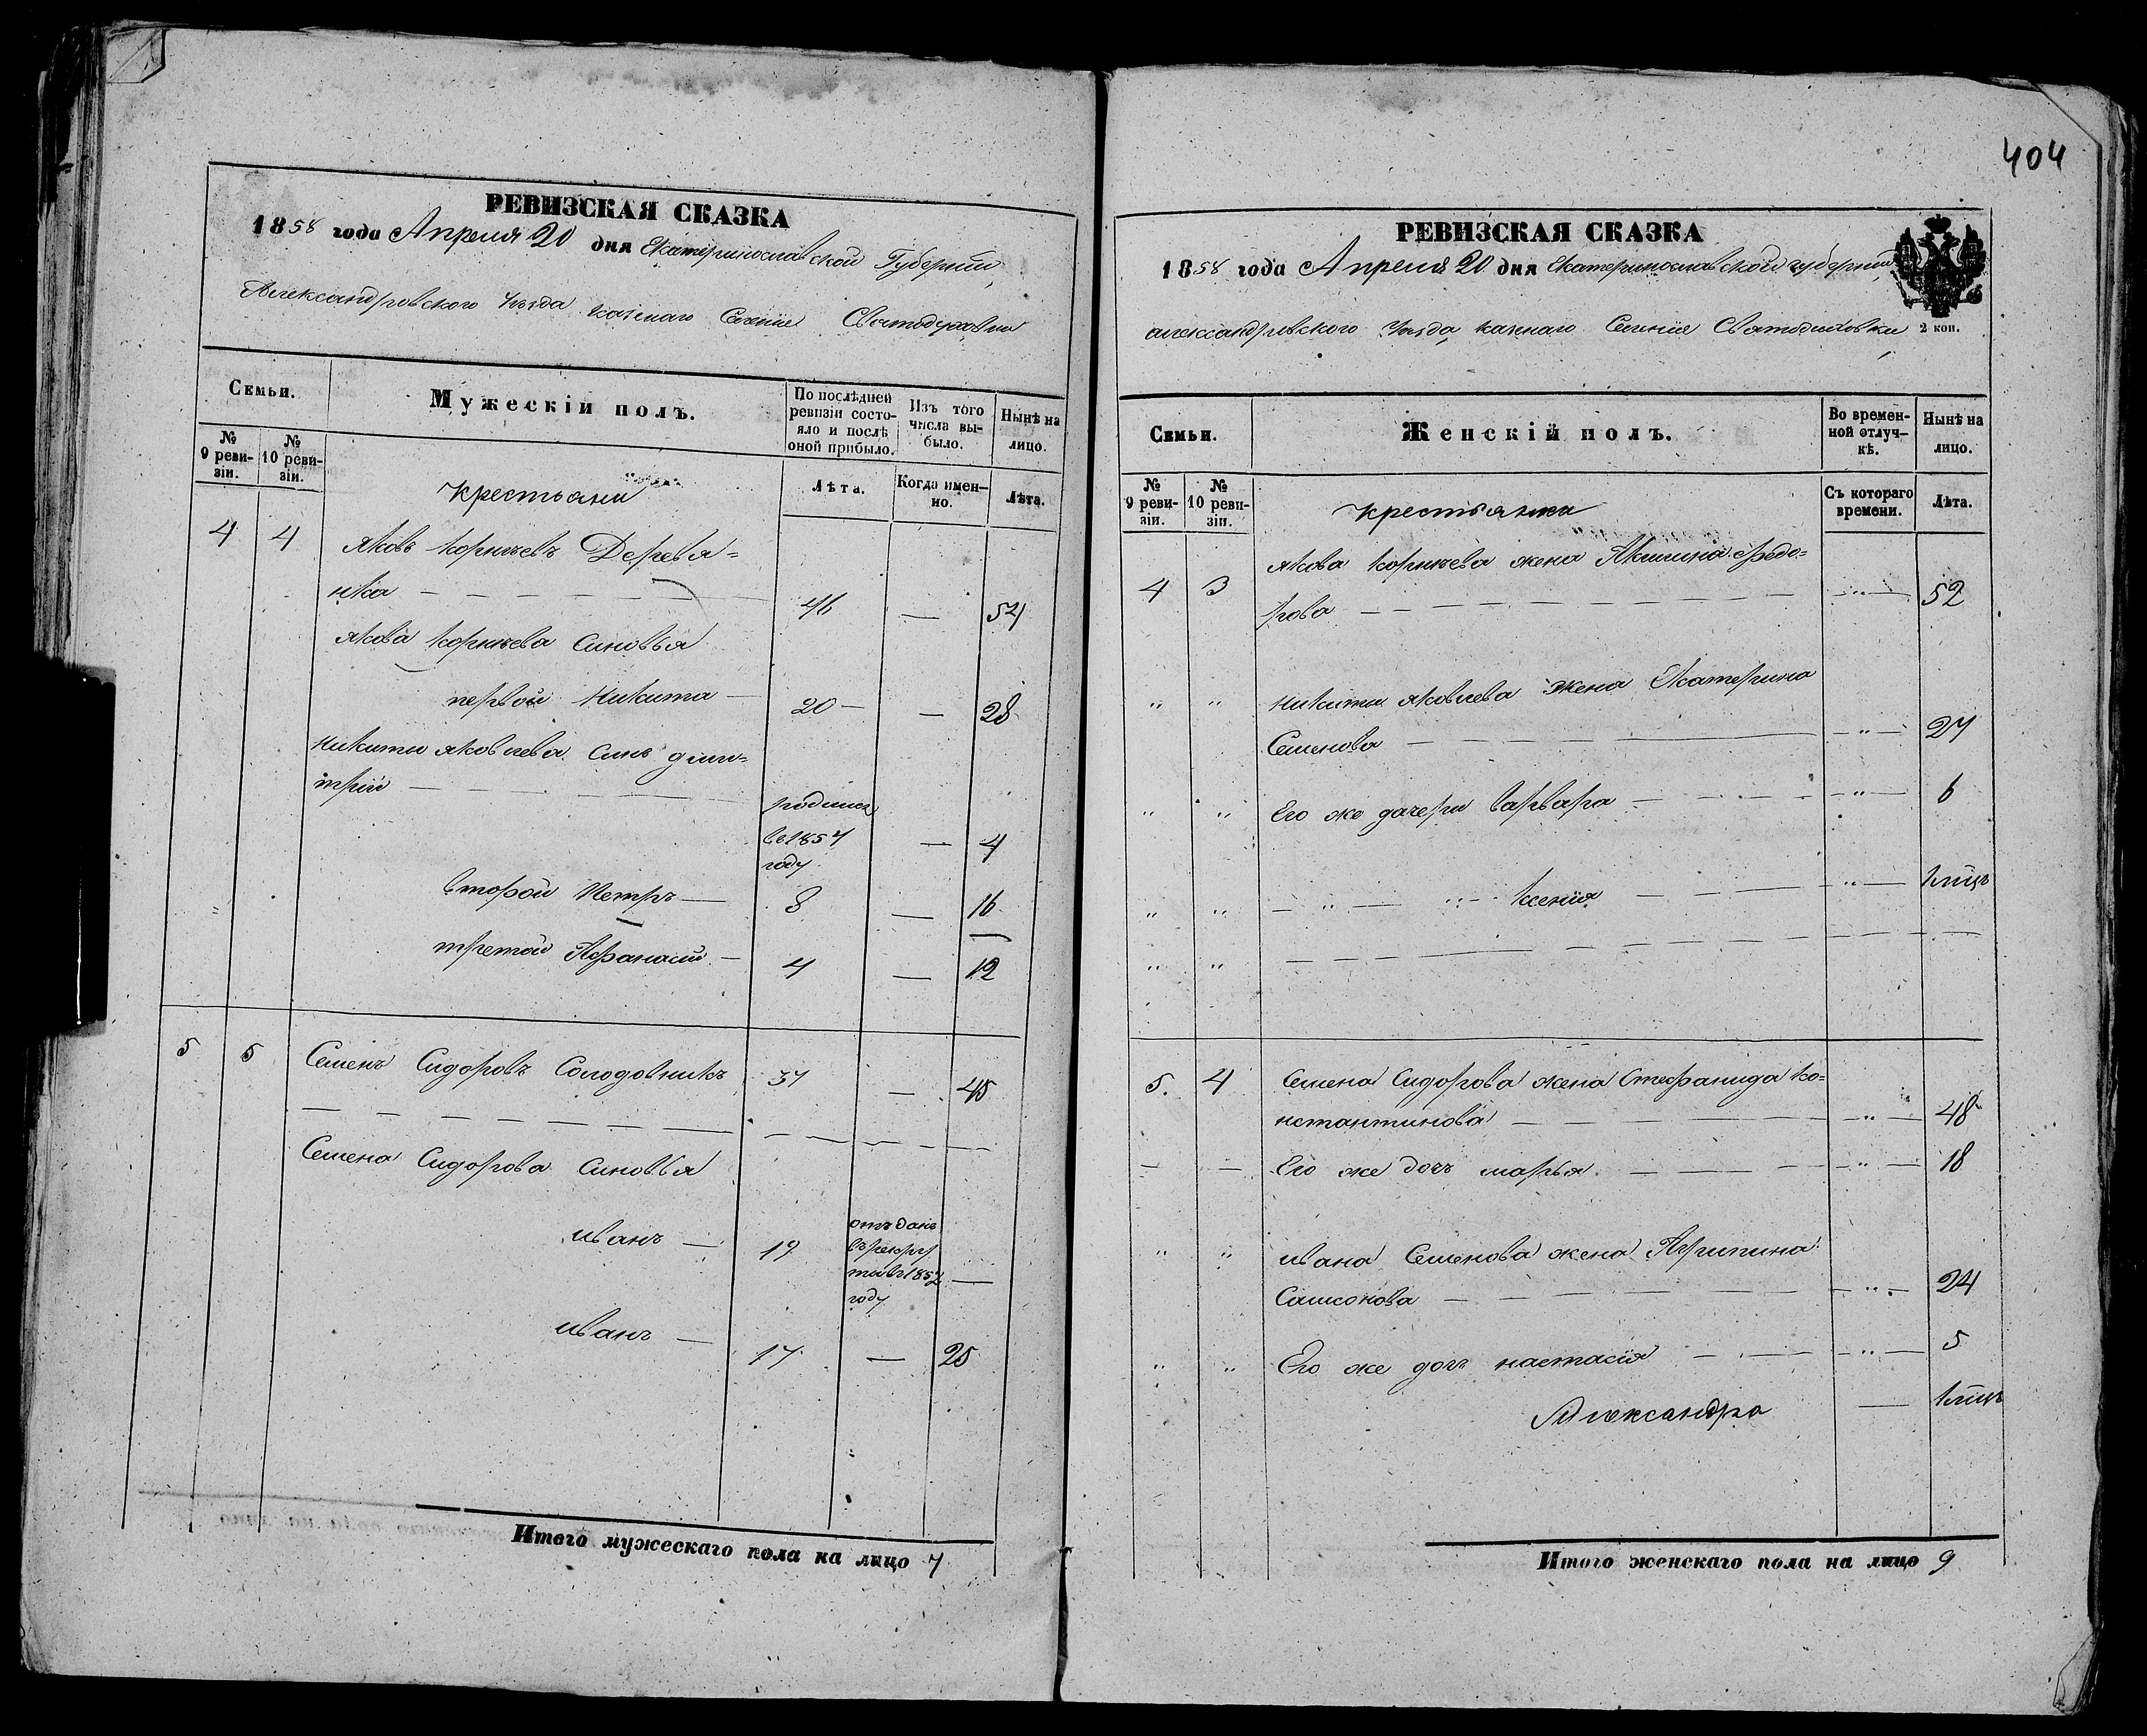 404
РЕВИЗСКАЯ СКАЗКА
1858 года Апреля 20 дня Екатеринославской Губернии,
Александровского Уезда казенаго Селение Святодуховки
Семьи.
Мужескій полъ.
По послѣдней ревизіи состояло и послѣ оной прибыло.
Изъ того числа выбыло.
Нынѣ на лицо.
№ 9 ревизіи.
№ 10 ревизіи.
Крестьяни
Лѣта.
Когда именно.
Лѣта.
4 4 Яковъ Корнѣевъ Деревя=
нка 46 — 54
Якова Корнѣева Синовья
первой Никита — 20 — — 28
Никиты Яковлева Синъ Дми=
трій родился
ве 1854 — 4
году
Второй Петръ — 8 — 16
третой Афанасій — 4 — 12
5 5 Семенъ Сидоровъ Солодовникъ 37 — 45
Семена Сидорова Синовья
Иванъ — 19 отъ данъ
въ рекру
ты въ 1852 —
году
Иванъ — 17 — 25
Итого мужескаго пола на лицо 7
РЕВИЗСКАЯ СКАЗКА
1858 года Апреля 20 дня Екатеринославской губернии,
александровского Уезда, казенаго Селения Святодуховки
2 коп.
Семьи.
Женскій полъ.
Во временной отлучкѣ.
Нынѣ на лицо.
№ 9 ревизіи.
№ 10 ревизіи.
Крестьянки
Съ котораго времени.
Лѣта.
Якова Корнѣева жена Акилина Федо=
4 3 рова — " — 52
Никиты Яковлева Жена Екатерина
" " Семенова — " — 27
" " Его же дачери Варвара — " — 6
" " — " — " — Ксенія — " — 1 мцъ
" "
5. 4 Семена Сидорова жена Стефанида Ко=
нстантинова — " — 48
— — Его же дочь марья — " — 18
" " Ивана Семенова жена Агрипина
Самсонова — " — 24
" " Его же дочъ настасія — " — 5
Александра — 1 мцъ
Итого женскаго пола на лицо 9